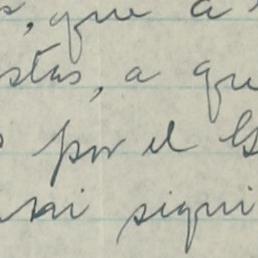 que a
stas, a qu
por el G
signi